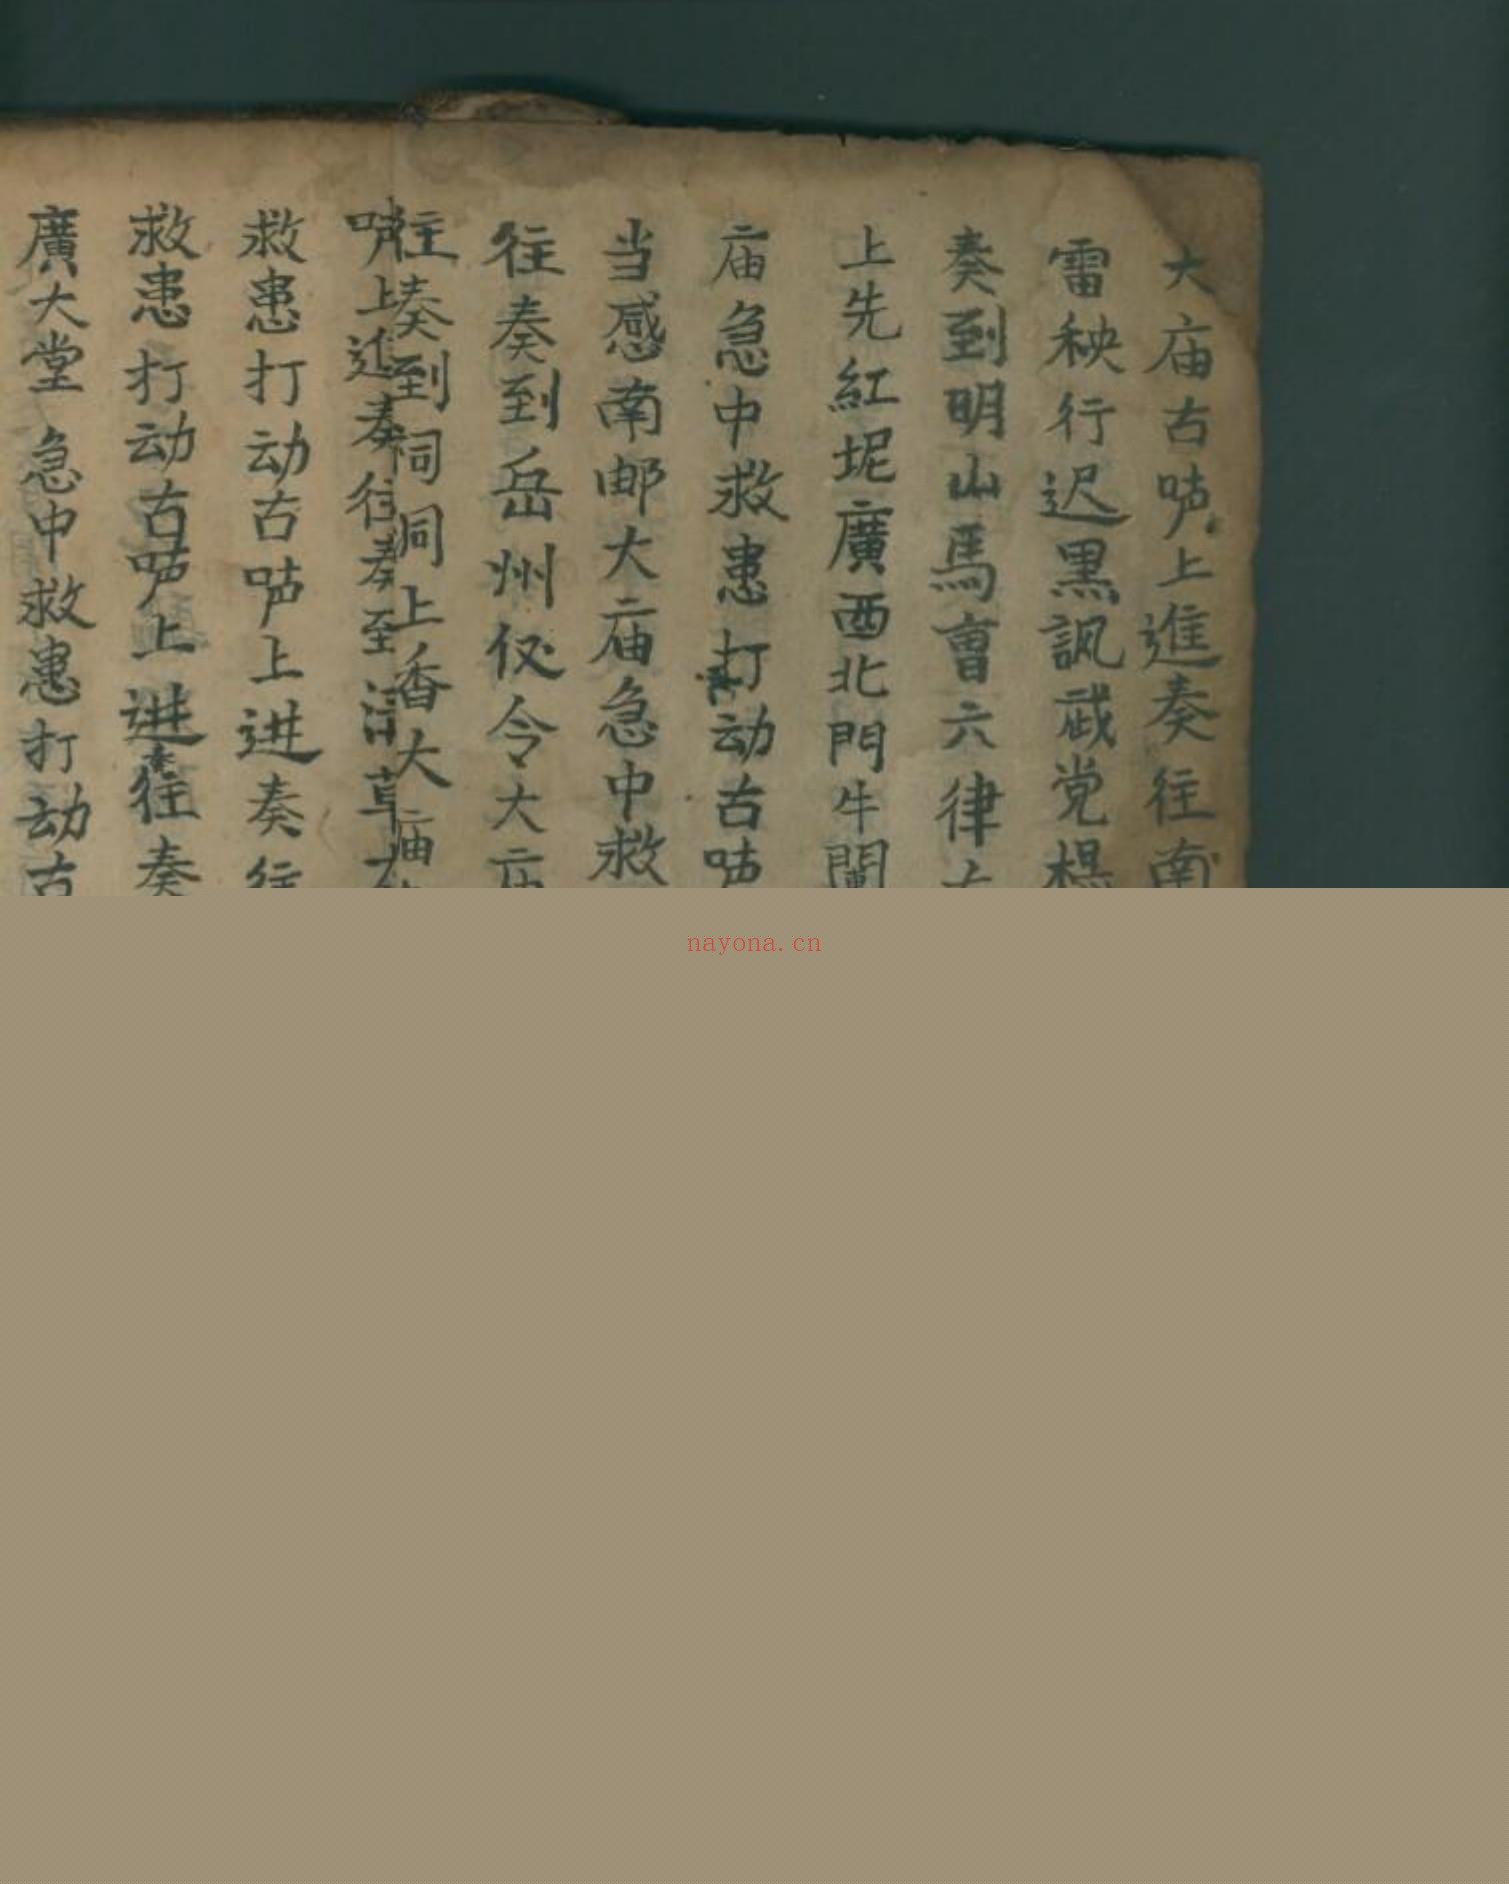 大庙古吥上進奏往南
雷秧行迟黑訊戓党楊
奏到明山馬曺六律
上先紅坭廣西北門牛闌
庙急中救患打动古
当感南邮大庙急中救
往奏到岳州仪令大
往奏到祠洞上香大庙
上進奏往奏至草
救患打动古上进奏往
救患打动古上进往奏
廣大堂急中救患打动古
nayona.cn